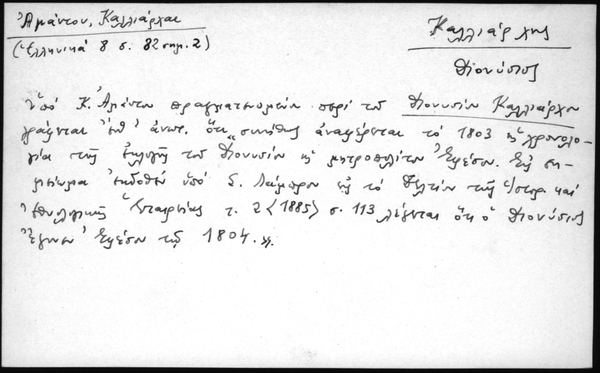 Ἀμάντου, Καλλιάρχαι
(Ἑλληνικά 8 σ. 82 σημ. 2)
Καλλιάρχης
Διονύσιος
Ὑπό Κ. Ἀμάντου πραγματευομένου περί τοῦ Διονυσίου Καλλιάρχου
γράφεται ἐνθ' ἀνωτ. ὅτι "συνήθως ἀναφέρεται τό 1803 ὡς χρονολο-
γία τῆς ἐκλογῆς τοῦ Διονυσίου ὡς μητροπολίτου Ἐφέσου. Εἰς ση-
μείωμα ἐκδοθέν ὑπό Σ. Λάμπρου εἰς τό Δελτίον τῆς Ἱστορ. καί
Ἐθνολογικῆς Ἑταιρείας τ. 2 <1885> σ. 113 λέγεται ὅτι ὁ Διονύσιος
ἔγινεν Ἐφέσου τῷ 1804".